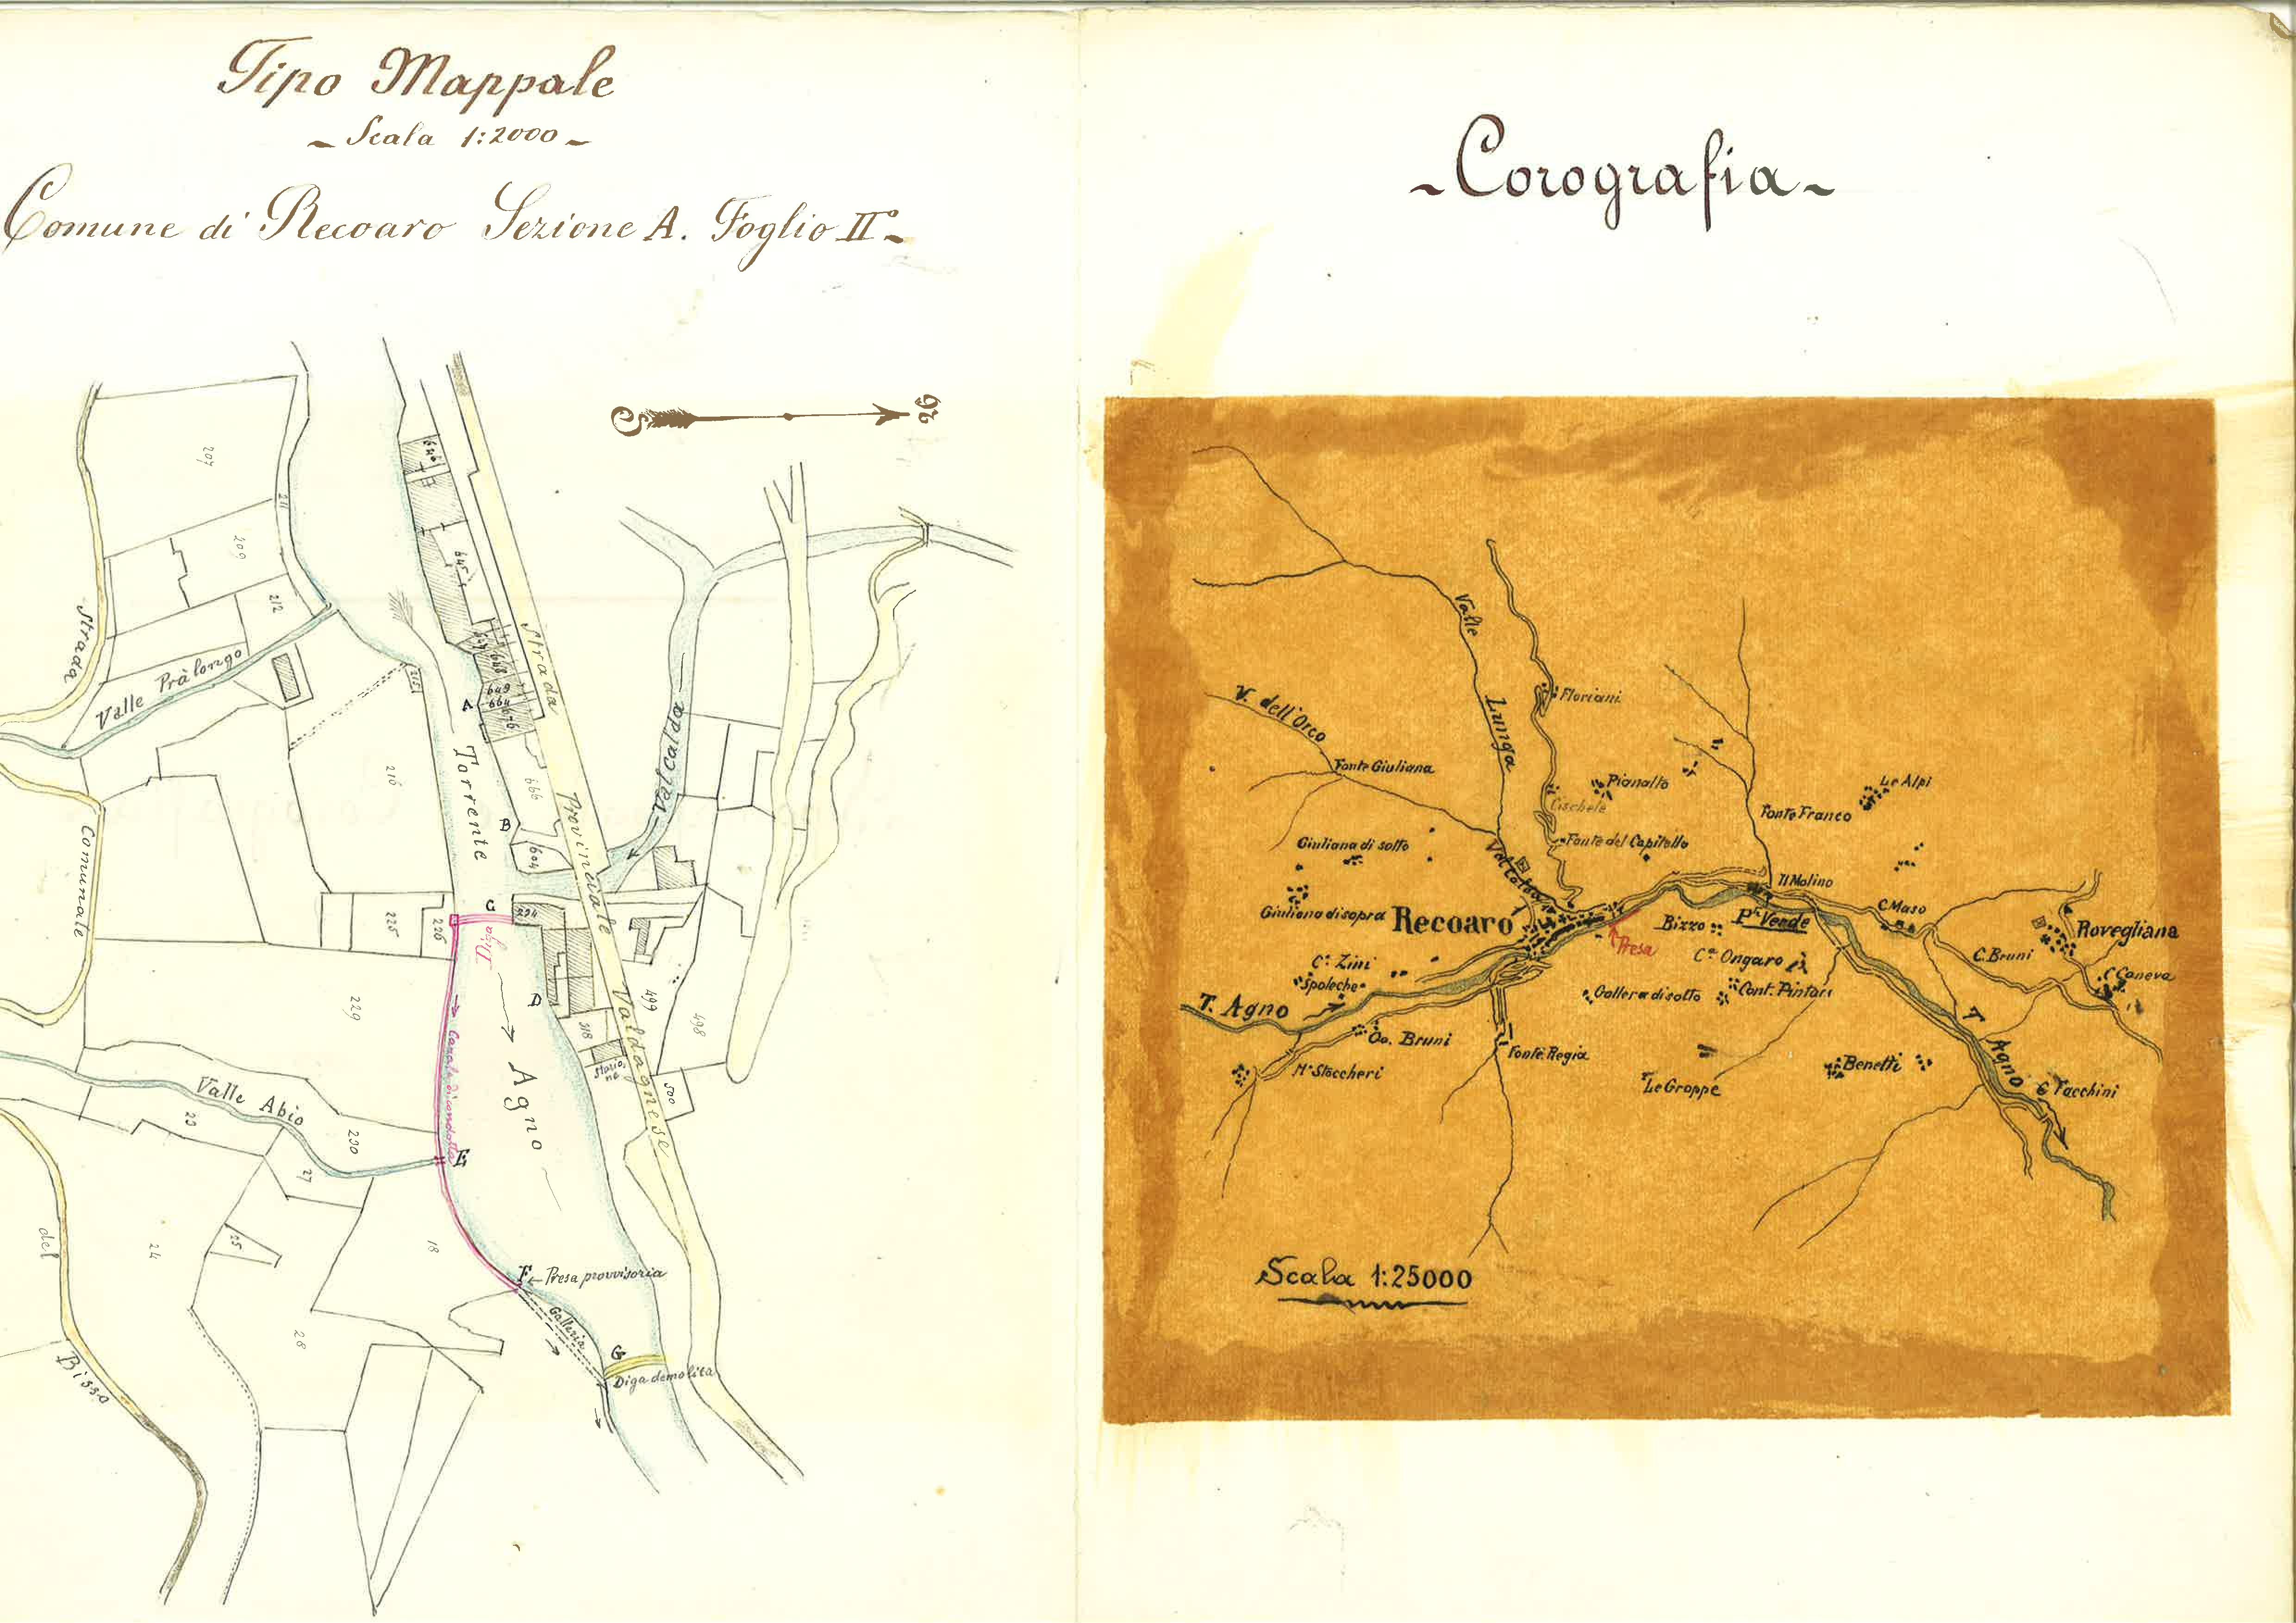 Tipo Mappale
~ Scala 1:2000 ~
Comune di Recoaro Sezione A. Foglio II° ~
S
207
211
209
212
Strada
Valle Pràlongo
215
216
645
649
664
676
A
Strada
Torrente
666
B
604
Provinciale
Valcalda
Comunale
225
226
C
234
Diga
D
229
Canale di condotta
Agno
318
499
498
500
Valdagnese
Valle Abio
23
230
27
E
del
24
25
18
F ← Presa provvisoria
Galleria
28
G
Diga demolita
Bisso
~ Corografia ~
Valle
Lunga
V. dell'Orco
Floriani
Fonte Giuliana
Pianalto
Cischele
Le Alpi
Fonte Franco
Giuliana di sotto
Fonte del Capitello
Valcalda
Il Molino
Giuliana di sopra
Recoaro
Presa
Bizzo
Pte Verde
C. Maso
Rovegliana
C. Bruni
Ca Ongaro
Ca Zini
Spoleche
C. Caneva
T. Agno
Gallera di sotto
Cont. Pintari
Oo. Bruni
Fonte Regia
T. Agno
Benetti
Mo Stoccheri
Le Groppe
C. Facchini
Scala 1:25000